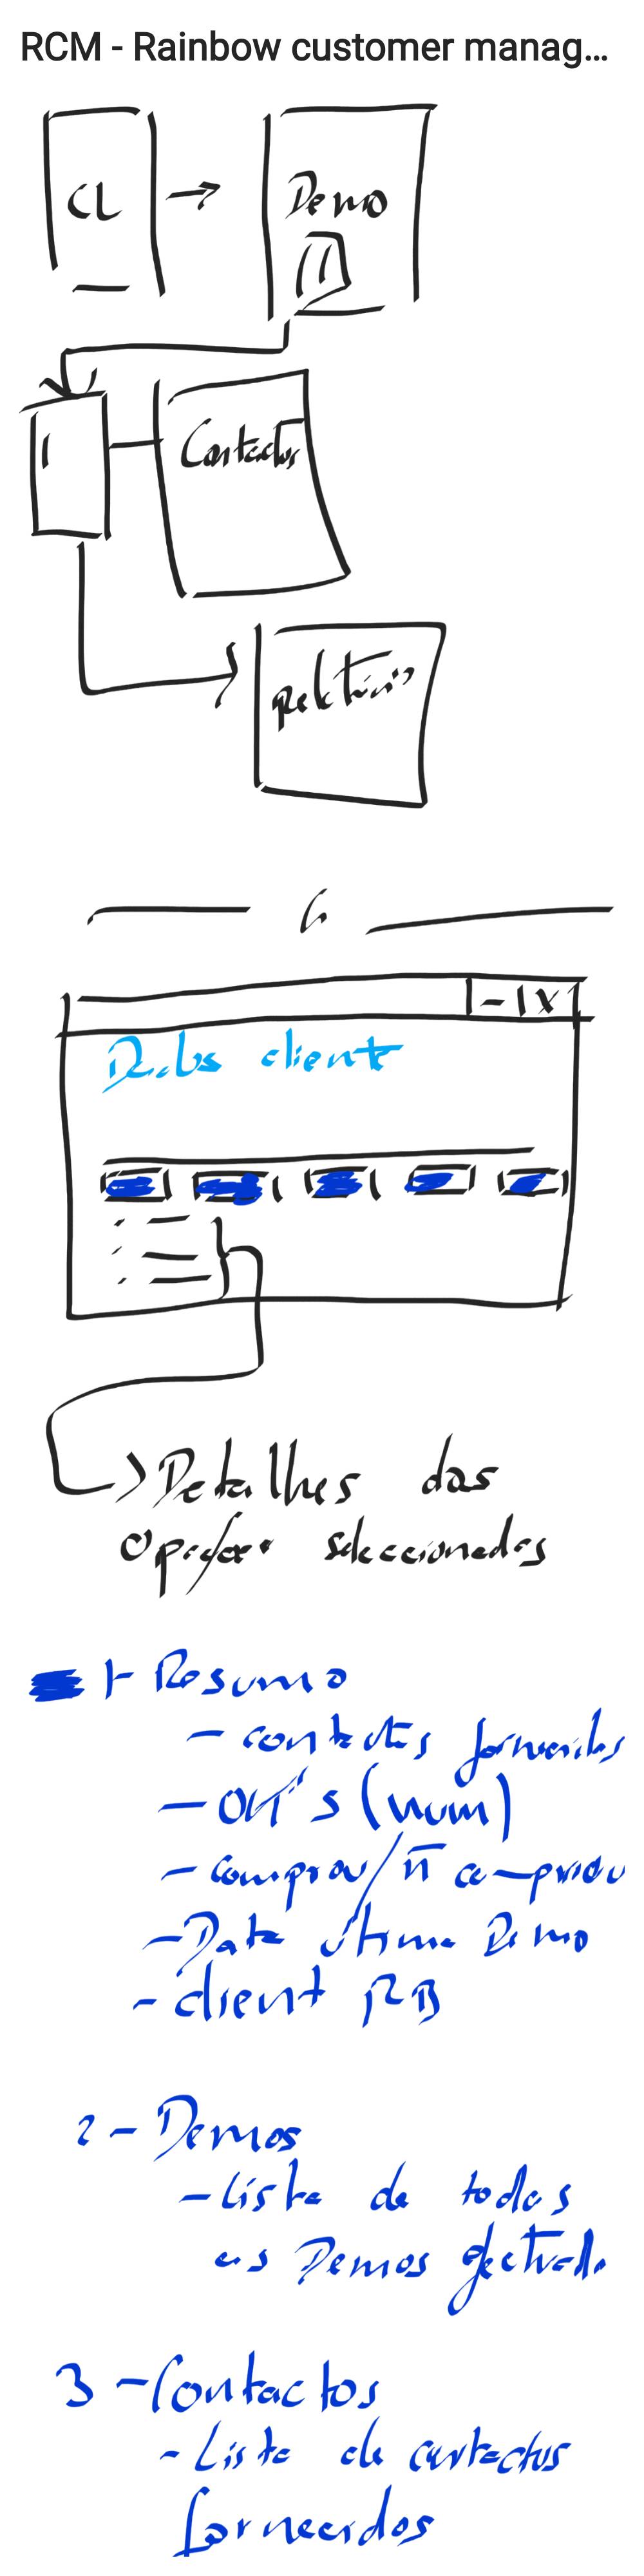 RCM - Rainbow customer manag...
CL → Demo
Contactos
Relatórios
- | X
Dados client
Detalhes das
seleccionadas
1- Resumo
- contactos fornecidos
- OK's (num)
- comprou/ñ comprou
- Data última Demo
- client RB
2 - Demos
- Lista de todas
as Demos efectuada
3 - Contactos
- Lista de contactos
fornecidos